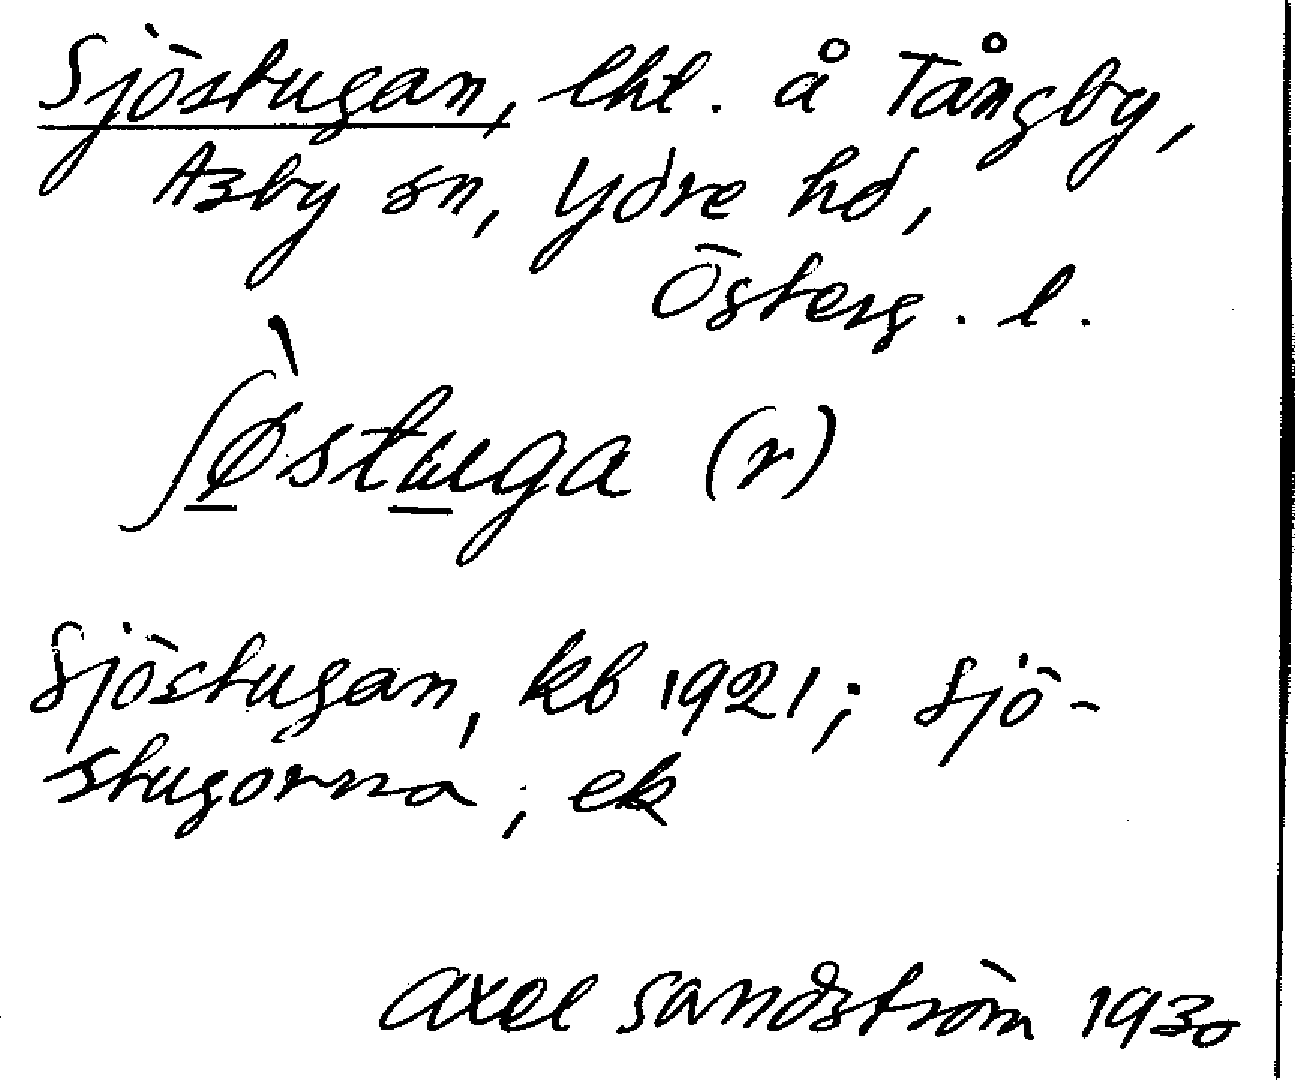 Sjöstugan, lht. å Tångby,
Asby sn, Ydre hd,
Österg. l.
ʃø̀stuga (r)
Sjöstugan, kb 1921; Sjö-
stugorna, ek
Axel Sandström 1930